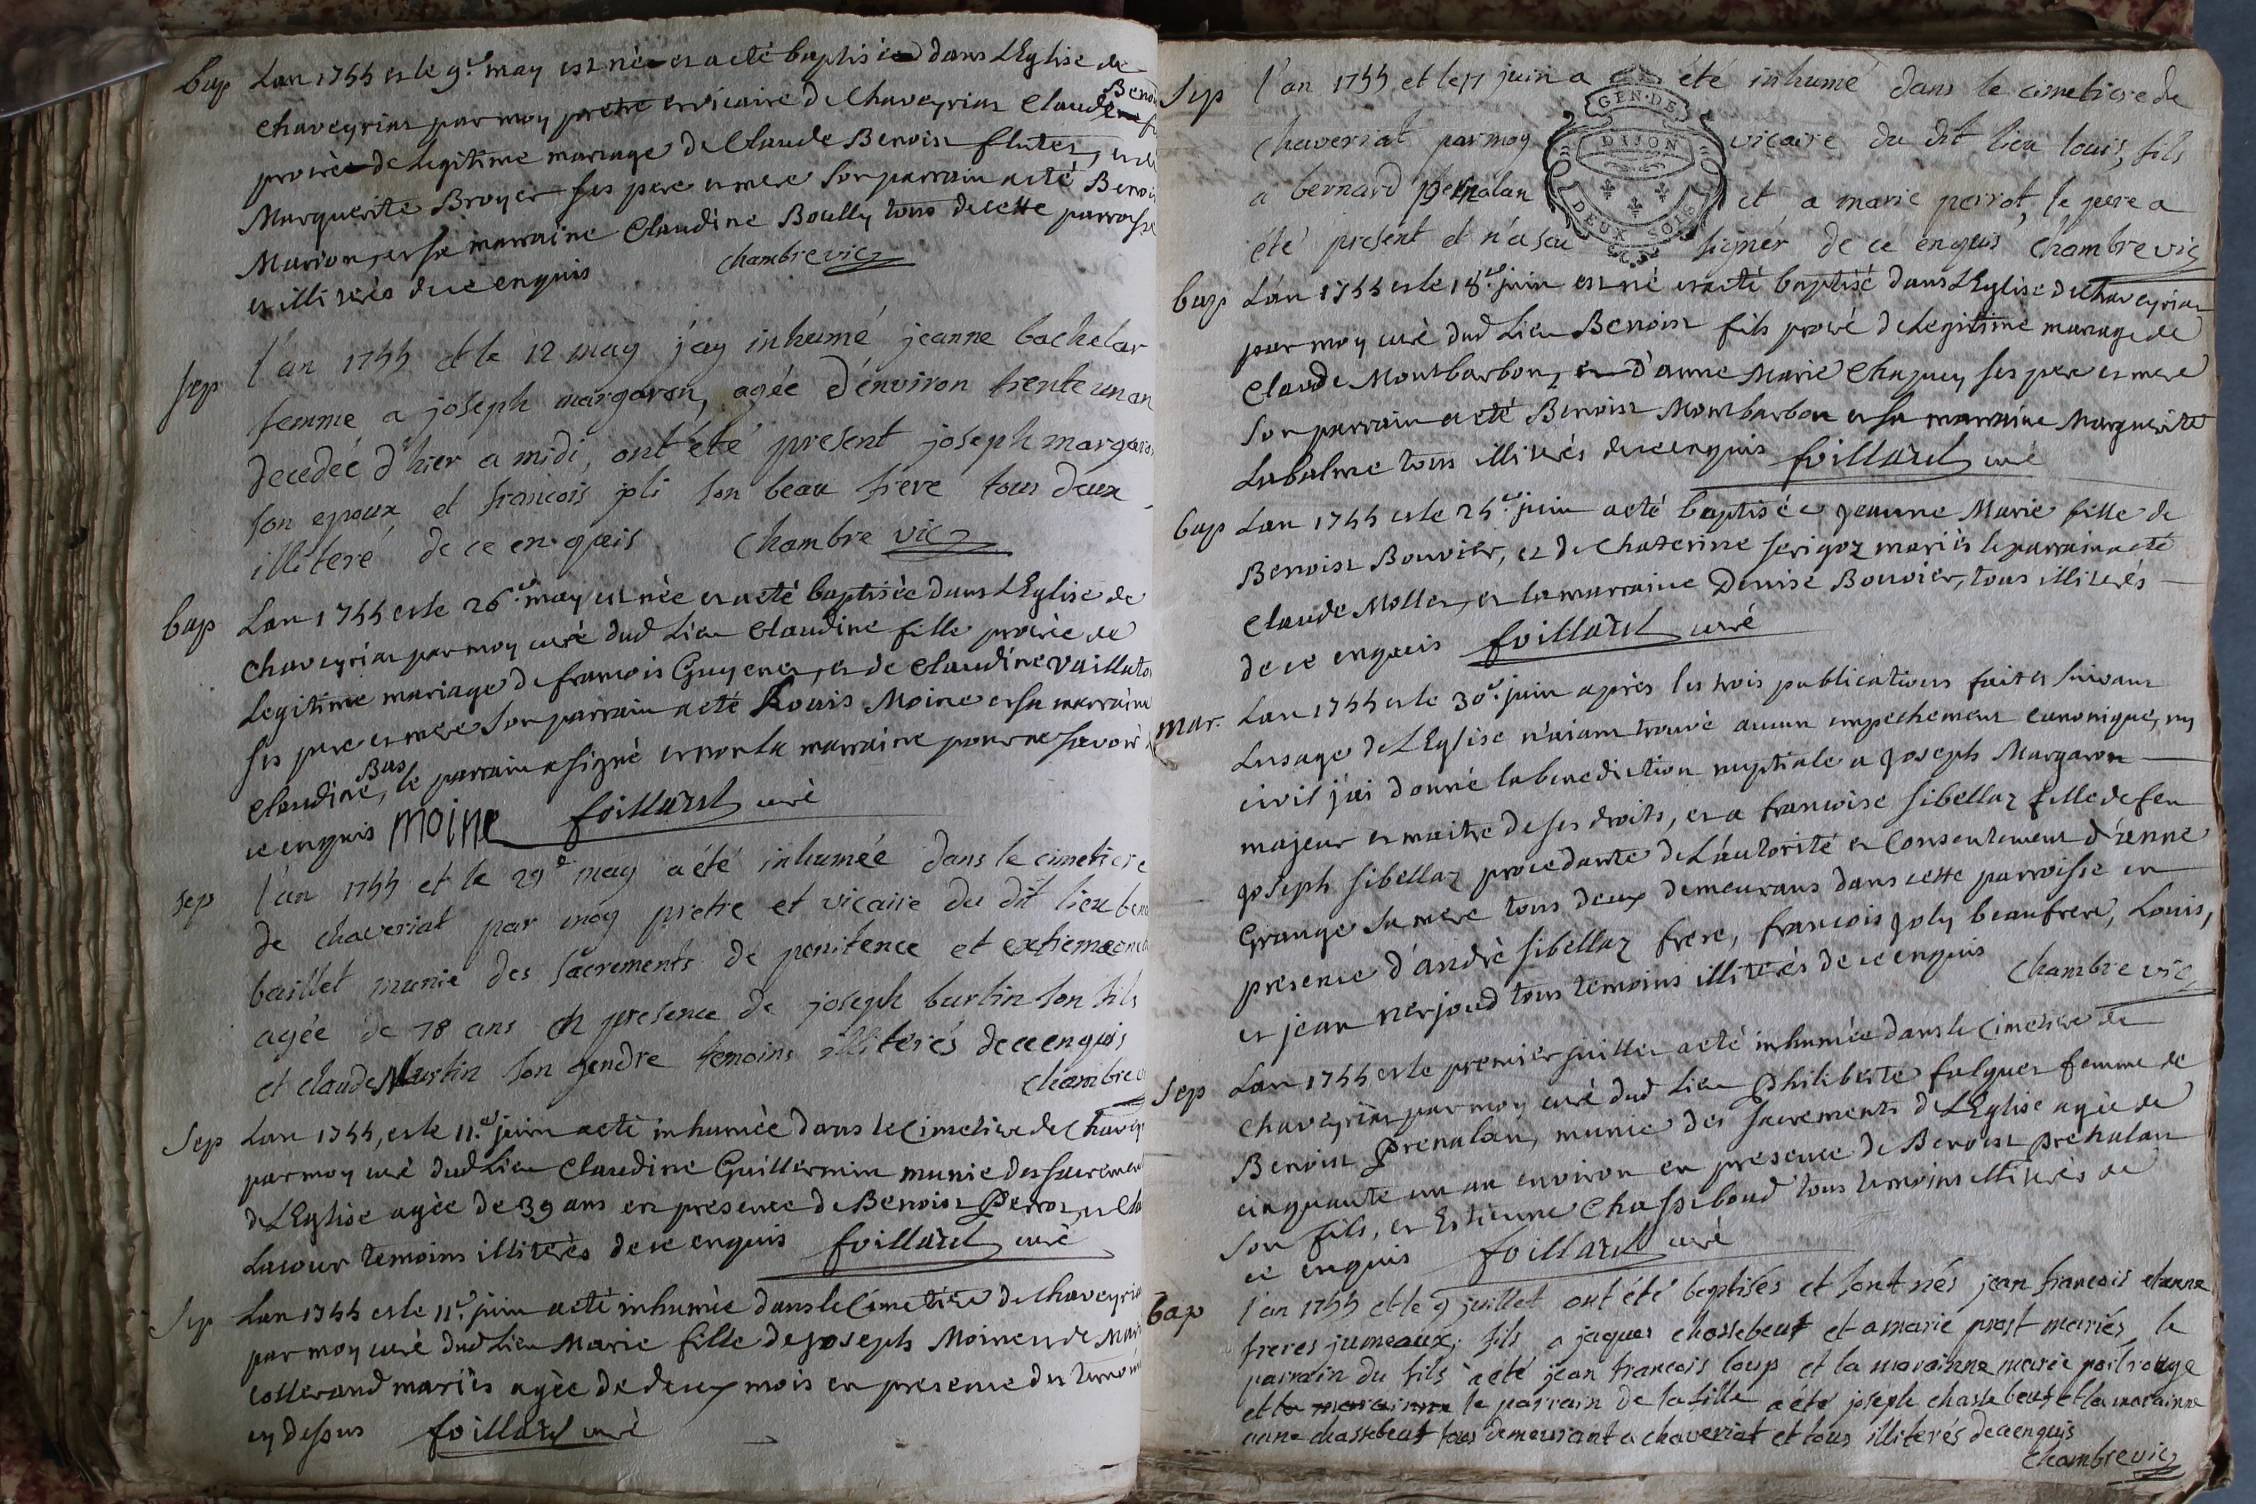 bap Lan 1755 et le 9e may est née et a eté baptisée dans LEglise de
Chaveyriat par moy pretre et vicaire de Chaveyriat Claude Benoi
procrée de Legitime mariage de Claude Benoist flutet, et de
Marguerite Broyer ses pere et mere son parrain a eté Benoi
Marion, et sa marraine Claudine Boully tous de cette parroisse
et illiterés de ce enquis chambre vic
sep l'an 1755 et le 12 may j'ay inhumé jeanne bachelar
femme a joseph margaron, agée d'environ trente un an
decedée d'hier a midi, ont été present joseph margaron
son epoux et francois joli son beau frere tous deux
illiteré de ce enquis Chambre vic
bap Lan 1755 et le 26e may est née et a eté baptisée dans LEglise de
Chaveyriat par moy curé dud Lieu Claudine fille procrée de
Legitime mariage de francois Guyenet, et de Claudine vaillato
ses pere et mere son parrain a eté Louis Moine et sa marraine
Claudine Bas, le parrain a signé et non la marraine pour ne savoir
ce enquis moine foillard curé
sep l'an 1755 et le 29e may a été inhumée dans le cimetiere
de chaveriat par moy pretre et vicaire du dit lieu ben
baillet munie des sacrements de penitence et extremeonc
agée de 78 ans en presence de joseph burtin son fils
et claude Murtin son gendre temoins illiterés de ce enquis
chambre
sep Lan 1755, et le 11e juin a eté inhumée dans le Cimetiere de Chavey
par moy curé dud Lieu Claudine Guillermin munie des sacremen
de LEglise agée de 39 ans en presence de Benoist Perrot, et Cla
Lacour temoins illiterés de ce enquis foillard curé
Sep Lan 1755 et le 11e juin a eté inhumée dans le Cimetiere de Chaveyria
par moy curé dud Lieu Marie fille de Joseph Moine et de Mari
Cosserand mariés agée de deux mois en presence des temoin
cy dessus foillard curé
Sep l'an 1755 et le 17 juin a été inhumé dans le cimetiere de
chaveriat par moy vicaire du dit lieu louis, fils
a bernard prenalan et a marie perrot, le pere a
été present et n'a scu signer de ce enquis Chambre vic
GEN. DE DIJON
DEUX SOLS
bap Lan 1755 et le 18e juin est né et a eté baptisé dans LEglise de Chaveyriat
par moy curé dud Lieu Benoist fils procré de Legitime mariage de
Claude Montbarbon, et d'anne Marie Chaguey ses pere et mere
son parrain a eté Benoist Montbarbon et sa marraine Marguerite
Labalme tous illiterés de ce enquis foillard curé
bap Lan 1755 et le 25e juin a eté baptisée Jeanne Marie fille de
Benoist Bouvier, et de Chaterine serigoz mariés le parrain a eté
Claude Mollet, et la marraine Denise Bouvier, tous illiterés
de ce enquis foillard curé
mar. Lan 1755 et le 30e juin après les trois publications faites suivant
Lusage de LEglise n'aiant trouvé aucun empechement canonique, ny
civil j'ai donné la benediction nuptiale a Joseph Margaron
majeur et maitre de ses droits, et a francoise sibellaz fille de feu
Joseph sibellaz procedante de L'autorité et Consentement d'Etienne
Grange sa mere tous deux demeurans dans cette parroisse en
presence d'andré sibellaz frere, francois joly beaufrere, Louis,
et jean nerjoud tous temoins illiterés de ce enquis Chambre vic
sep Lan 1755 et le premier juillet a eté inhumée dans le Cimetiere de
Chaveyriat par moy curé dud Lieu Philiberte fulguet femme de
Benoist Prenalan, munie des sacrements de LEglise agée de
cinquante un an environ en presence de Benoist prenalan
son fils, et Estienne Chassiboud tous temoins illiterés de
ce enquis foillard curé
bap l'an 1755 et le 9 juillet ont été baptisés et sont nés jean francois et anne
freres jumeaux, fils a jaques chassebeut et a marie prost mariés le
parrain du fils a eté jean francois loup et la marainne marie poilrouge
et la marainne le parrain de la fille a été joseph chassebeut et la marainne
anne chassebeut tous demeurant a chaveriat et tous illiterés de ce enquis
Chambre vic